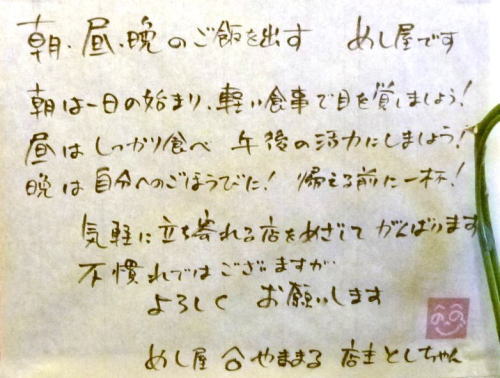 朝・昼・晩のご飯を出す めし屋です
朝は一日の始まり、軽い食事で目を覚しましょう!
昼はしっかり食べ 午後の活力にしましょう!
晩は自分へのごほうびに! 帰える前に一杯!
気軽に立ち寄れる店をめざして がんばります
不慣れではございますが
よろしく お願いします
めし屋 やままる 店主としちゃん